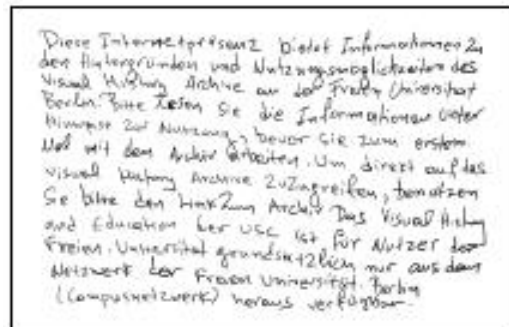 Diese Internetpräsenz bietet Informationen zu
den Hintergründen und Nutzungsmöglichkeiten des
Visual History Archive an der Freien Universität
Berlin. Bitte lesen Sie die Informationen unter
Hinweise zur Nutzung, bevor Sie zum ersten
Mal mit dem Archiv arbeiten. Um direkt auf das
Visual History Archive zuzugreifen, benutzen
Sie bitte den Link zum Archiv. Das Visual History
and Education der USC ist für Nutzer der
Freien Universität grundsätzlich nur aus dem
Netzwerk der Freien Universität Berlin
(Campusnetzwerk) heraus verfügbar.